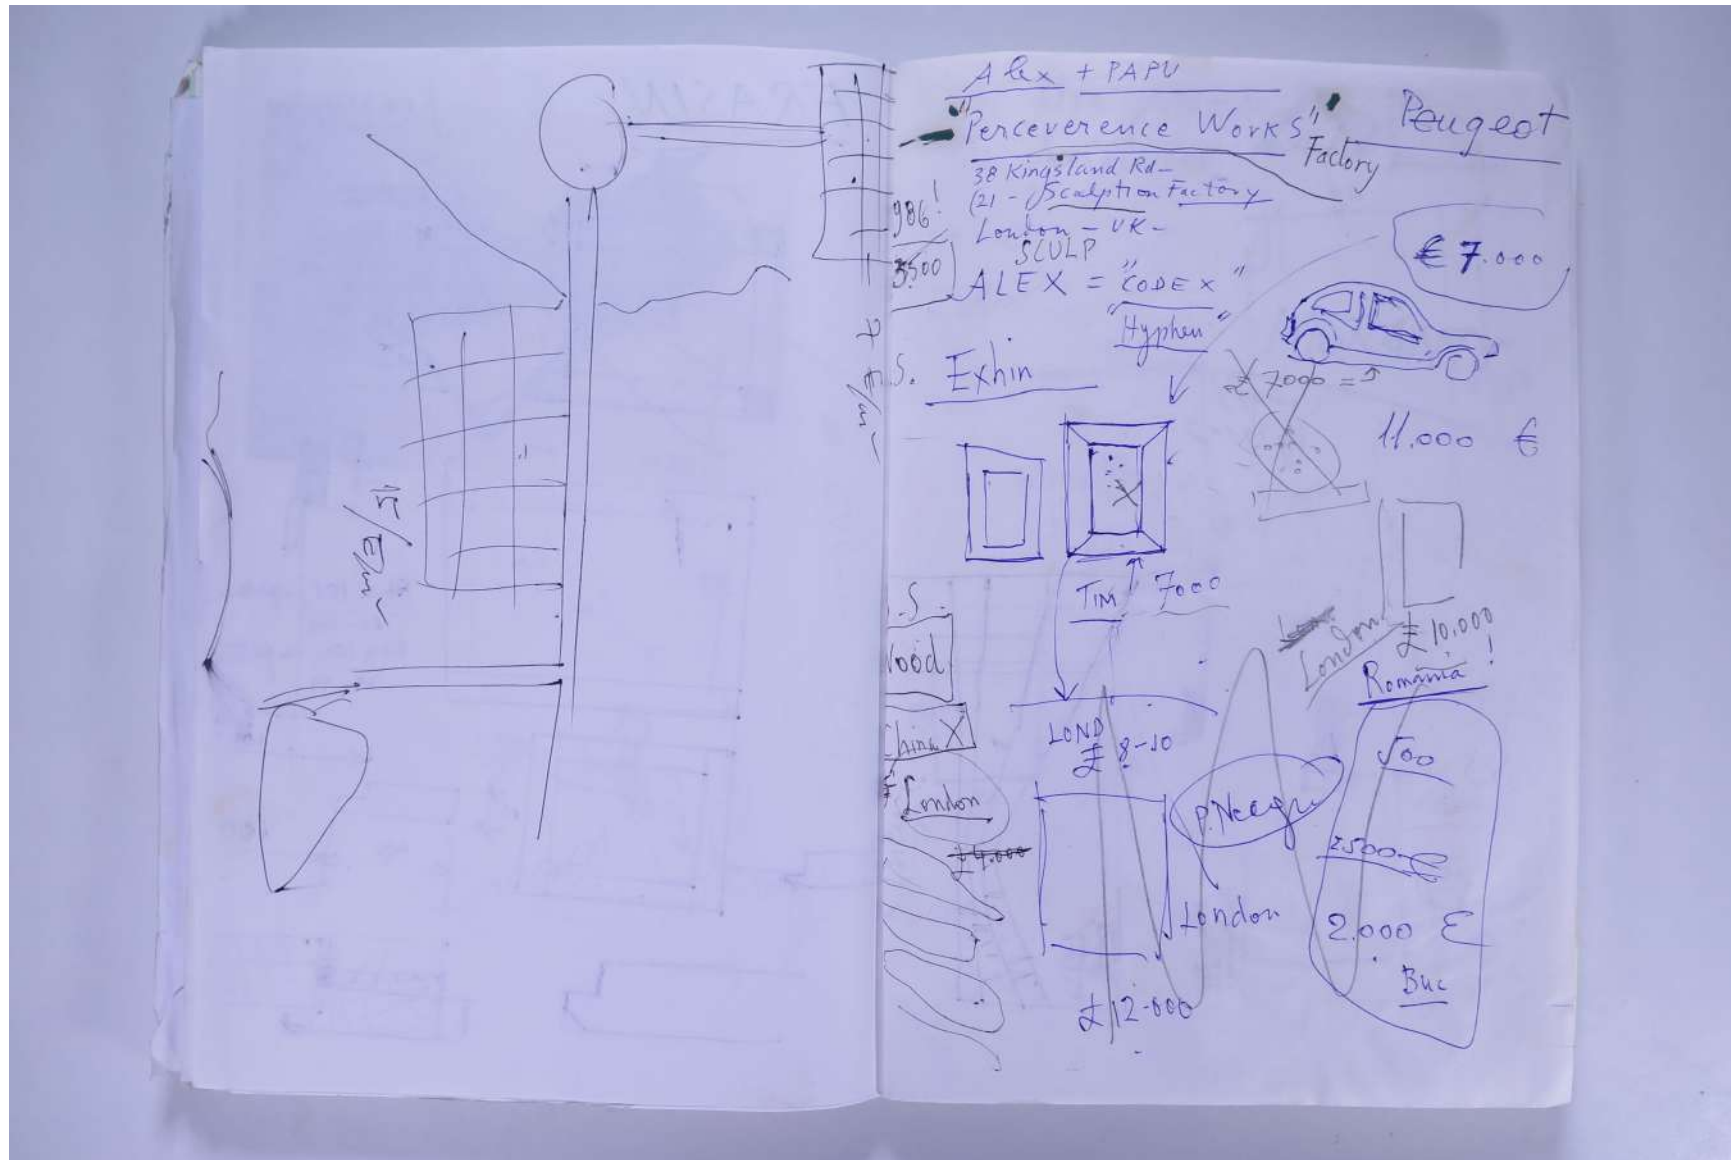 Alex + PAPU
"Perceverence Works"
Factory
Peugeot
38 Kingsland Rd-
(21 - Scalption Factory
London - UK -
SCULP
986!
3500
ALEX = "CODEX"
"Hyphen"
€ 7.000
.S. Exhin
£ 7000 =
11.000 €
7 €/
15/E/
TIM 7000
London
£ 10.000
!
Romania
.S.
Wood
China X
London
£4.000
LOND
£ 8-10
London
£ 12.000
500
2500
2.000 €
Buc